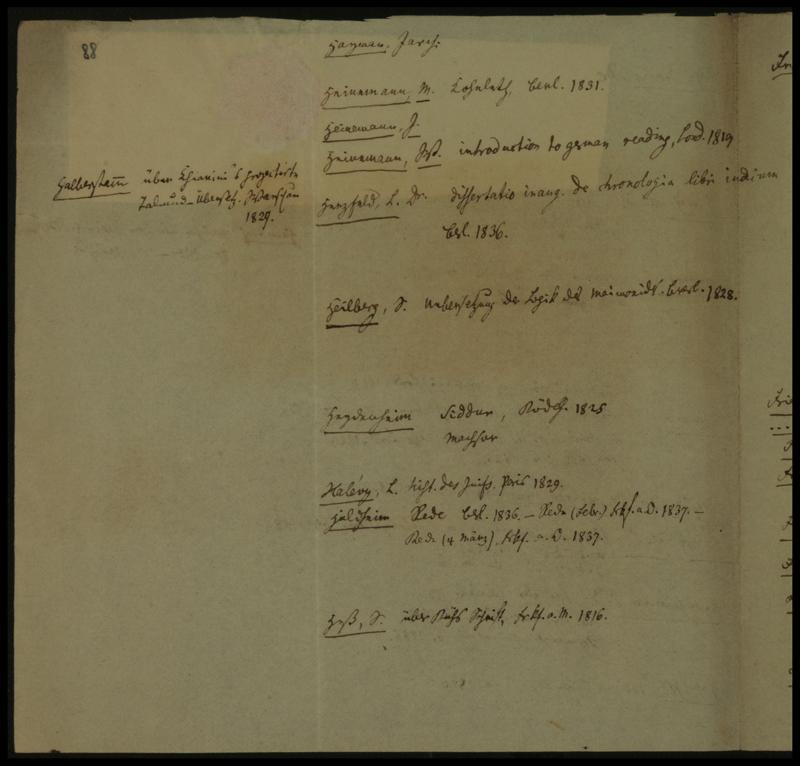 88
Haymann, Jarchi
Heinemann, M. Koheleth, Berl. 1831.
Heinemann, J.
Heinemann, M. introduction to german reading, Lond. 1819
Halberstamm über Chiarini's projectirte
Talmud-Übersetz. Warschau
1829.
Herzfeld, L. Dr. dissertatio inaug. de chronologia libri iudicum
Berl. 1836.
Heilberg, S. Uebersetzung der Logik des Maimonid. Bresl. 1828.
Heydenheim Siddur, Rödelh. 1825
Machsor
Halévy, L. hist. des Juifs. Paris 1829.
Holdheim Rede Berl. 1836. — Rede (Febr.) Frkf. a. O. 1837. —
Rede (4 März) Frkf. a. O. 1837.
Heß, S. über Rühs Schrift, Frkf. a. M. 1816.